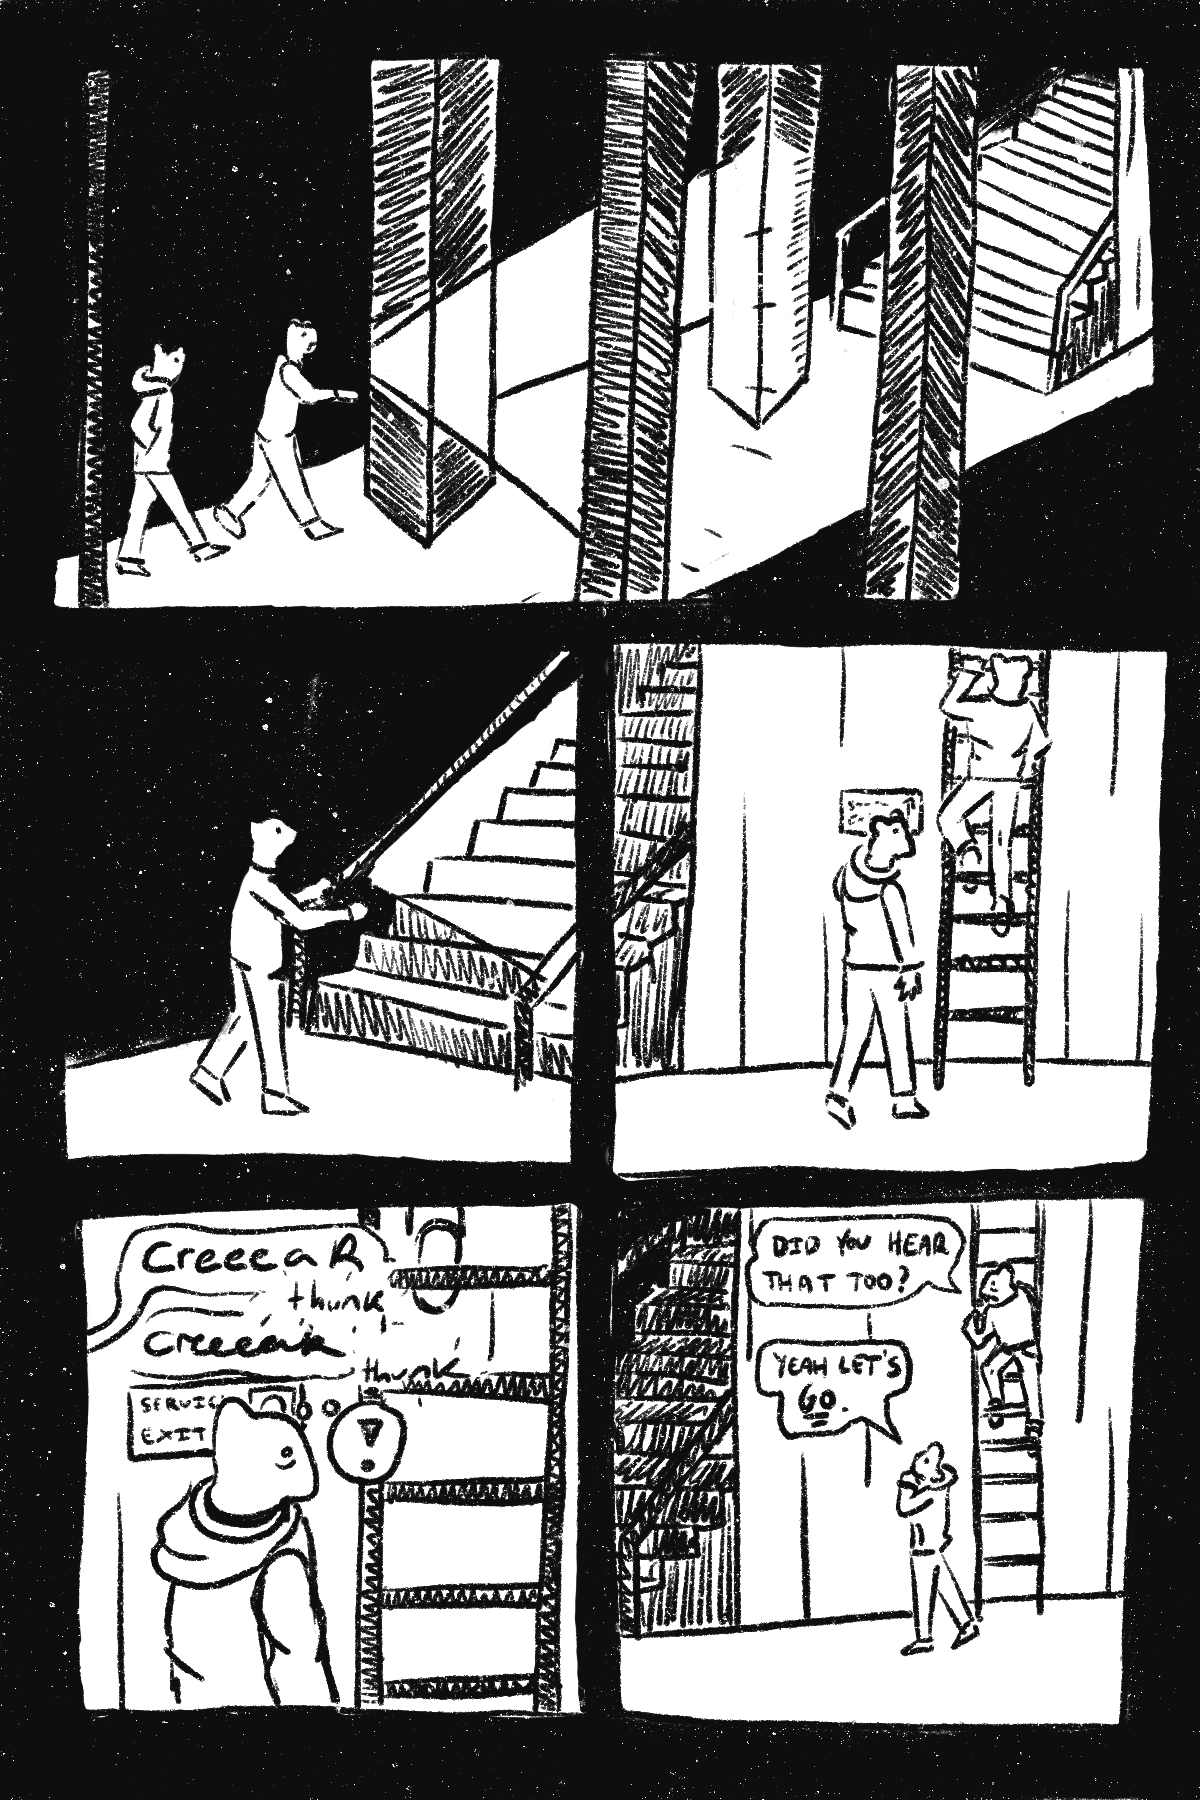 CreeeaK
thunk
creeeak
thunk
SERVIC
EXIT
!
DID YOU HEAR
THAT TOO?
YEAH LET'S
GO.